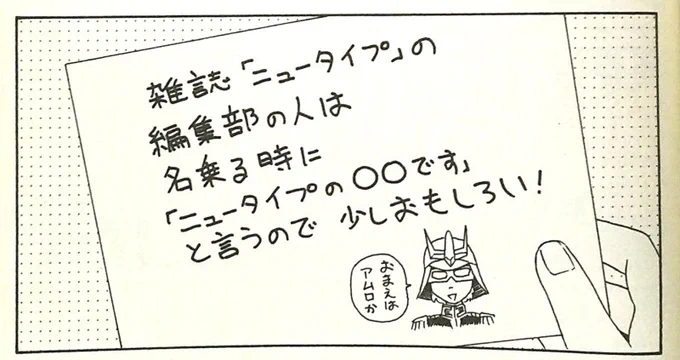 雑誌「ニュータイプ」の
編集部の人は
名乗る時に
「ニュータイプの〇〇です」
と言うので 少しおもしろい!
おまえは
アムロか